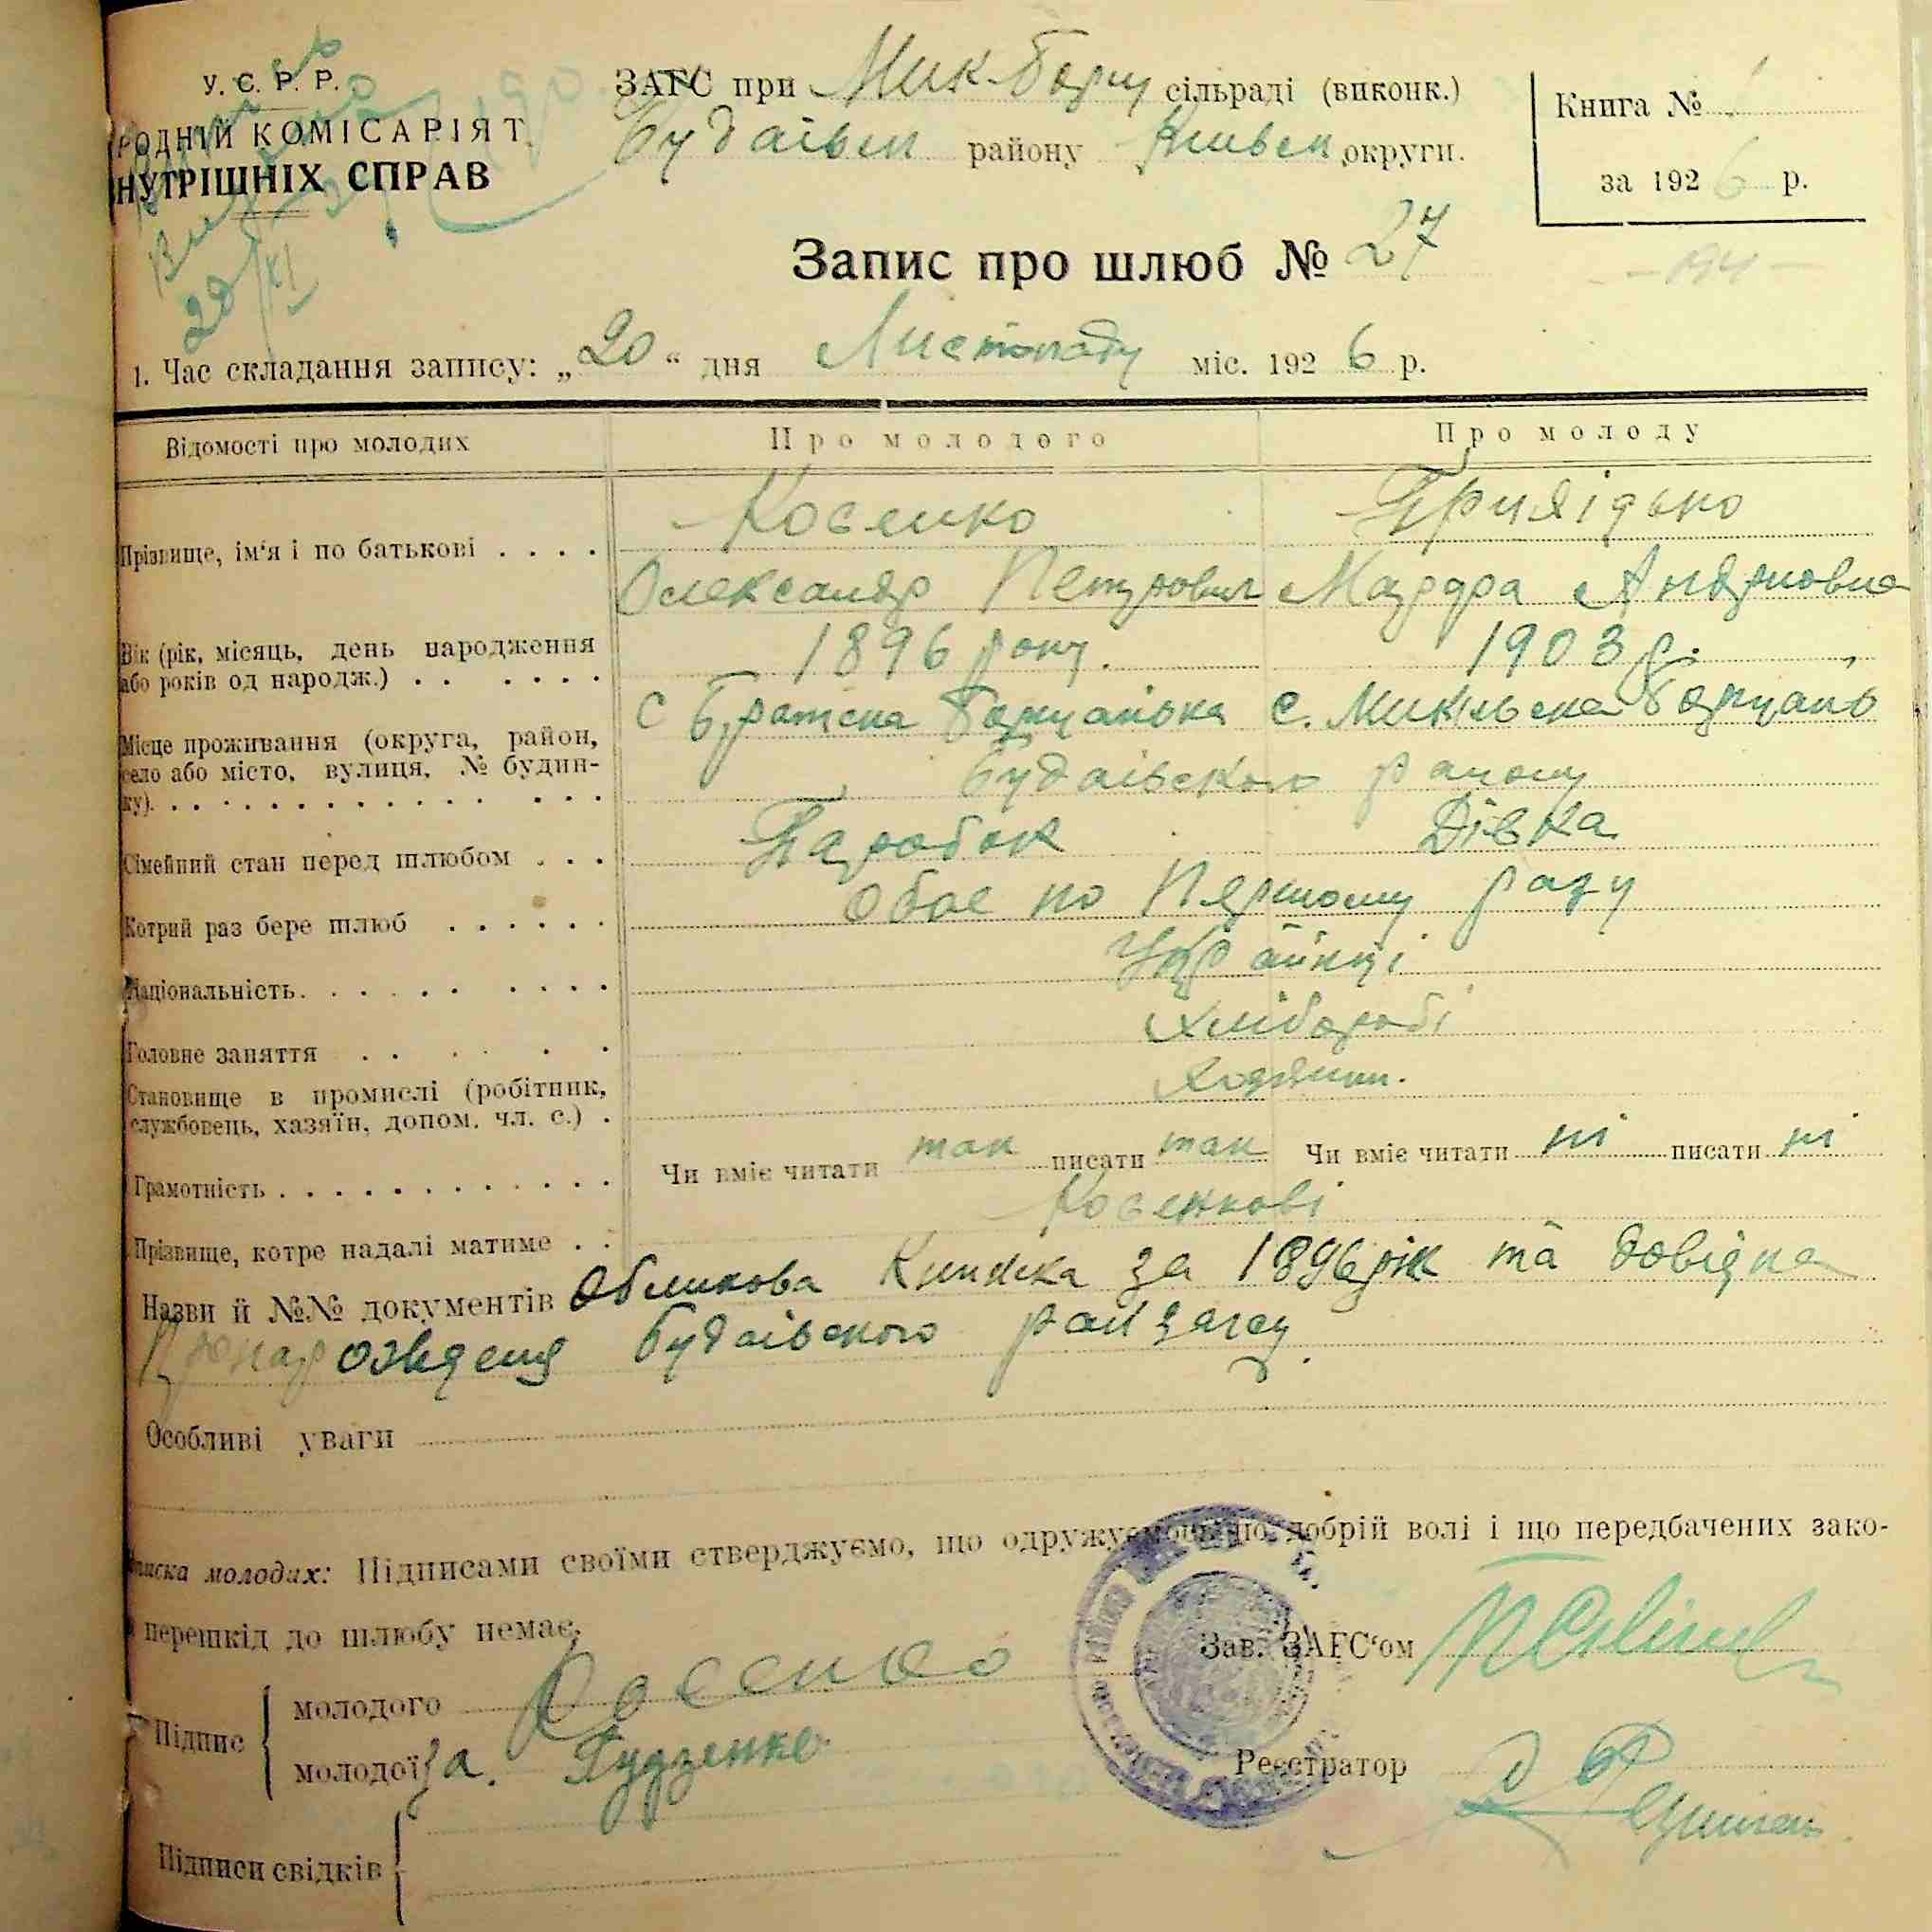 У.С.Р.Р.
РОДНІЙ КОМІСАРІЯТ
НУТРІШНІХ СПРАВ
20/XI
ЗАГС при Мик-Борщ сільраді (виконк.)
Будаївськ району Київськ округи.
Книга № 1
за 1926 р.
Запис про шлюб № 27
1. Час складання запису: „20“ дня Листопаду міс. 1926 р.
Відомості про молодих Про молодого Про молоду
Прізвище, ім‘я і по батькові . . . . Косенко
Олександр Петрович Андріовна
Вік (рік, місяць, день народження
або років од народж.) . . . . . . 1896 року. 1903 р.
Місце проживання (округа, район,
село або місто, вулиця, № будин-
ку). с Братська Борщагівка с. Микільська Борщагів
Будаівского району
Сімейний стан перед шлюбом . . . Парубок Дівка
Котрий раз бере шлюб . . . . . . Обое по Першому разу
Національність. . . . . . . . . . Українці
Головне заняття . . . . . Хлібороби
Становище в промислі (робітник,
службовець, хазяїн, допом. чл. с.) .
Грамотність . . . . . . . . . . . . Чи вміє читати так писати так Чи вміє читати ні писати ні
Прізвище, котре надалі матиме . . Косенкові
Назви й №№ документів Обликова Книжка за 1896 рік та довідка
Будаівского райзагсу.
Особливі уваги
писка молодих: Підписами своїми стверджуємо, що одружуємось по добрій волі і що передбачених зако-
перешкід до шлюбу немає.
Зав. ЗАГС‘ом
Підпис
молодого Косенко
молодої за. Гудзенко
Реєстратор
Підписи свідків